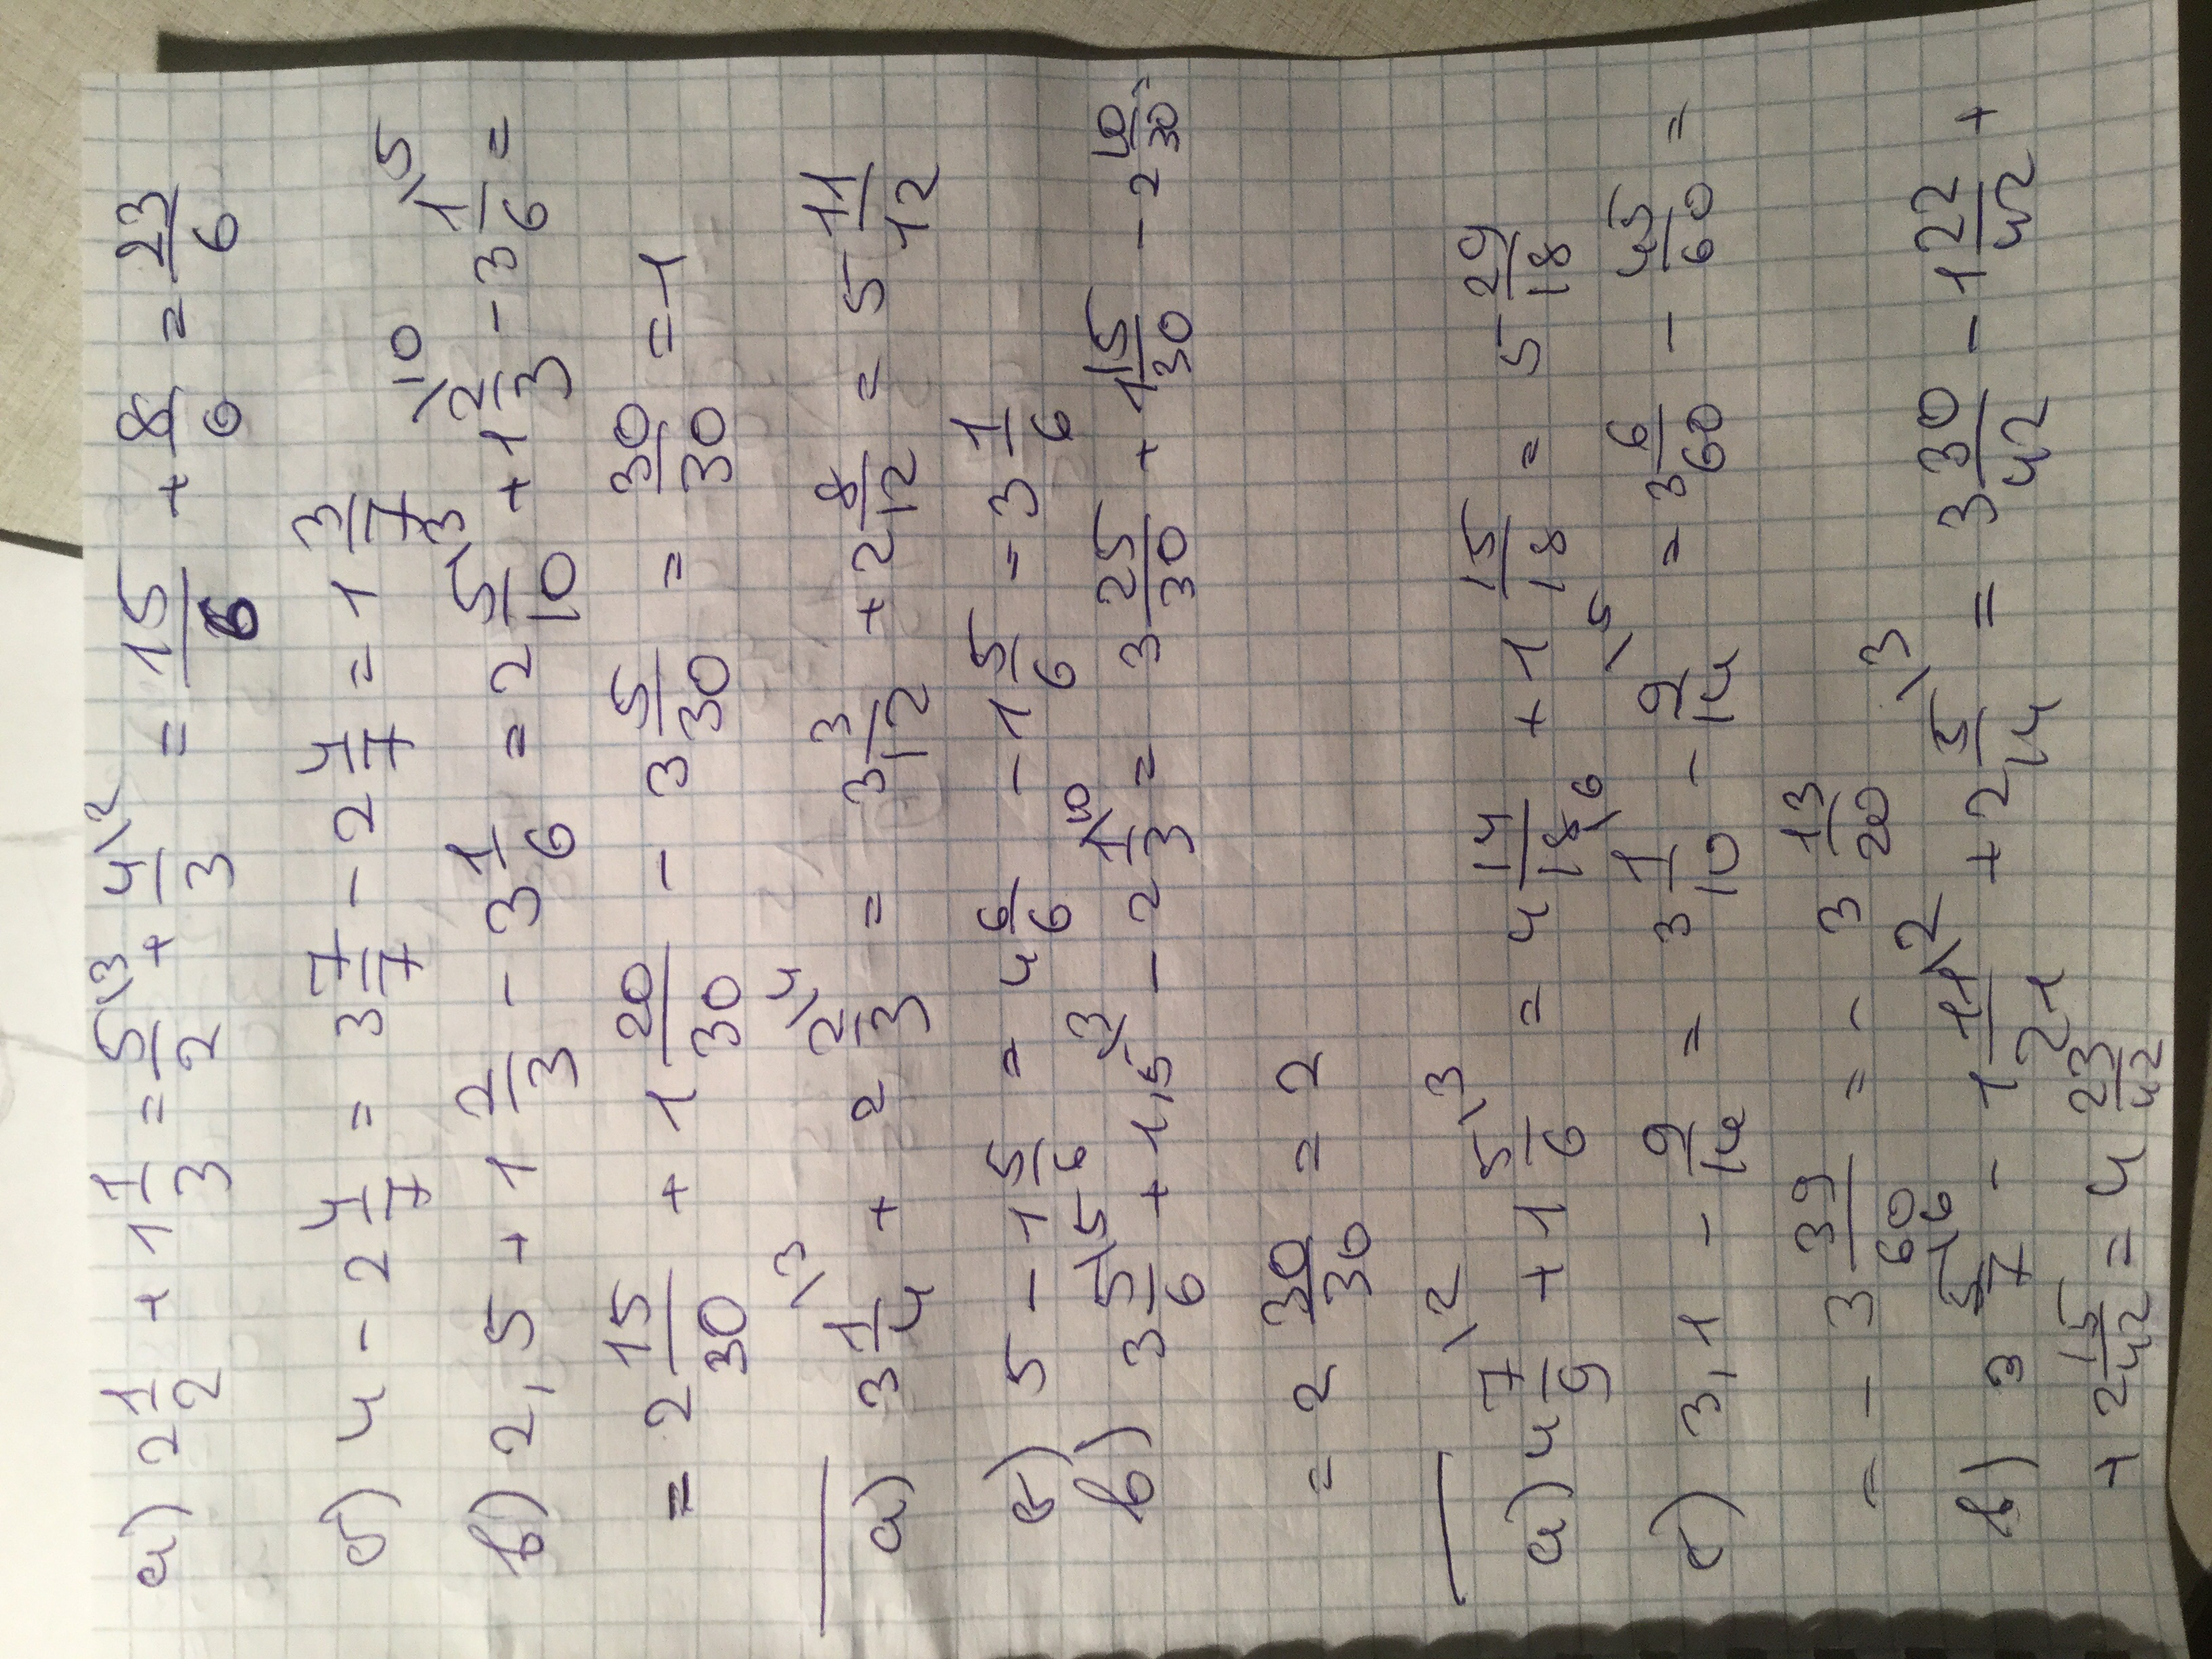 а) 2 1/2 + 1 1/3 = 5/2 \3 + 4/3 \2 = 15/6 + 8/6 = 23/6
б) 4 - 2 4/7 = 3 7/7 - 2 4/7 = 1 3/7
в) 2,5 + 1 2/3 - 3 1/6 = 2 5/10 \3 + 1 2/3 \10 - 3 1/6 \5 =
= 2 15/30 + 1 20/30 - 3 5/30 = 30/30 = 1
а) 3 1/4 \3 + 2 2/3 \4 = 3 3/12 + 2 8/12 = 5 11/12
б) 5 - 1 5/6 = 4 6/6 - 1 5/6 = 3 1/6
в) 3 5/6 \5 + 1,5 \3 - 2 1/3 \10 = 3 25/30 + 1 15/30 - 2 10/30 =
= 2 30/30 = 2
а) 4 7/9 \2 + 1 5/6 \3 = 4 14/18 + 1 15/18 = 5 29/18
б) 3,1 - 9/14 = 3 1/10 \6 - 9/14 \5 = 3 6/60 - 45/60 =
= - 3 39/60 = - 3 13/20
в) 3 5/7 \6 - 1 11/21 \2 + 2 5/14 \3 = 3 30/42 - 1 22/42 +
+ 2 15/42 = 4 23/42